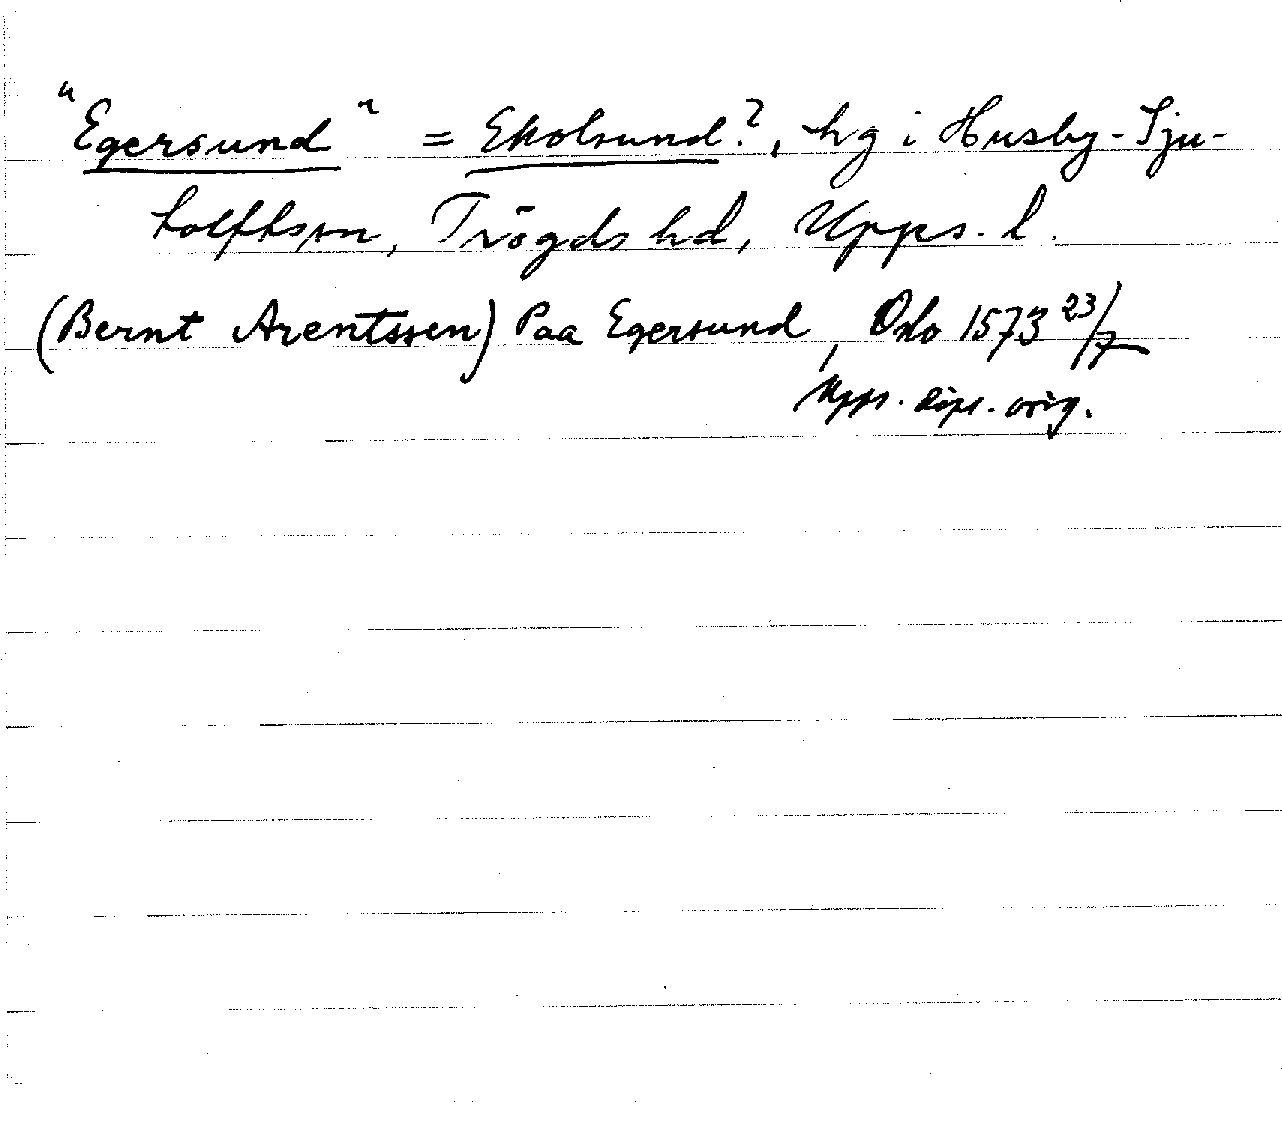 "Egersund" = Ekolsund?, hg i Husby-Sju-
tolftspn, Trögds hd, Upps. l.
(Bernt Arentssen) Paa Egersund, Oslo 1573 23/7
Upps. dipl. orig.